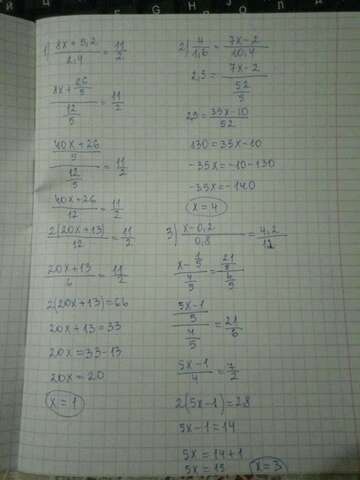 1) (8x+5,2)/2,4 = 11/2
(8x+26/5)/(12/5) = 11/2
((40x+26)/5)/(12/5) = 11/2
(40x+26)/12 = 11/2
2(20x+13)/12 = 11/2
(20x+13)/6 = 11/2
2(20x+13)=66
20x+13=33
20x=33-13
20x=20
x=1
2) 4/1,6 = (7x-2)/10,4
2,5 = (7x-2)/(52/5)
2,5 = (35x-10)/52
130=35x-10
-35x=-10-130
-35x=-140
x=4
3) (x-0,2)/0,8 = 4,2/12
((5x-1)/5)/(4/5) = 21/6
(5x-1)/4 = 7/2
2(5x-1)=28
5x-1=14
5x=14+1
5x=15
x=3